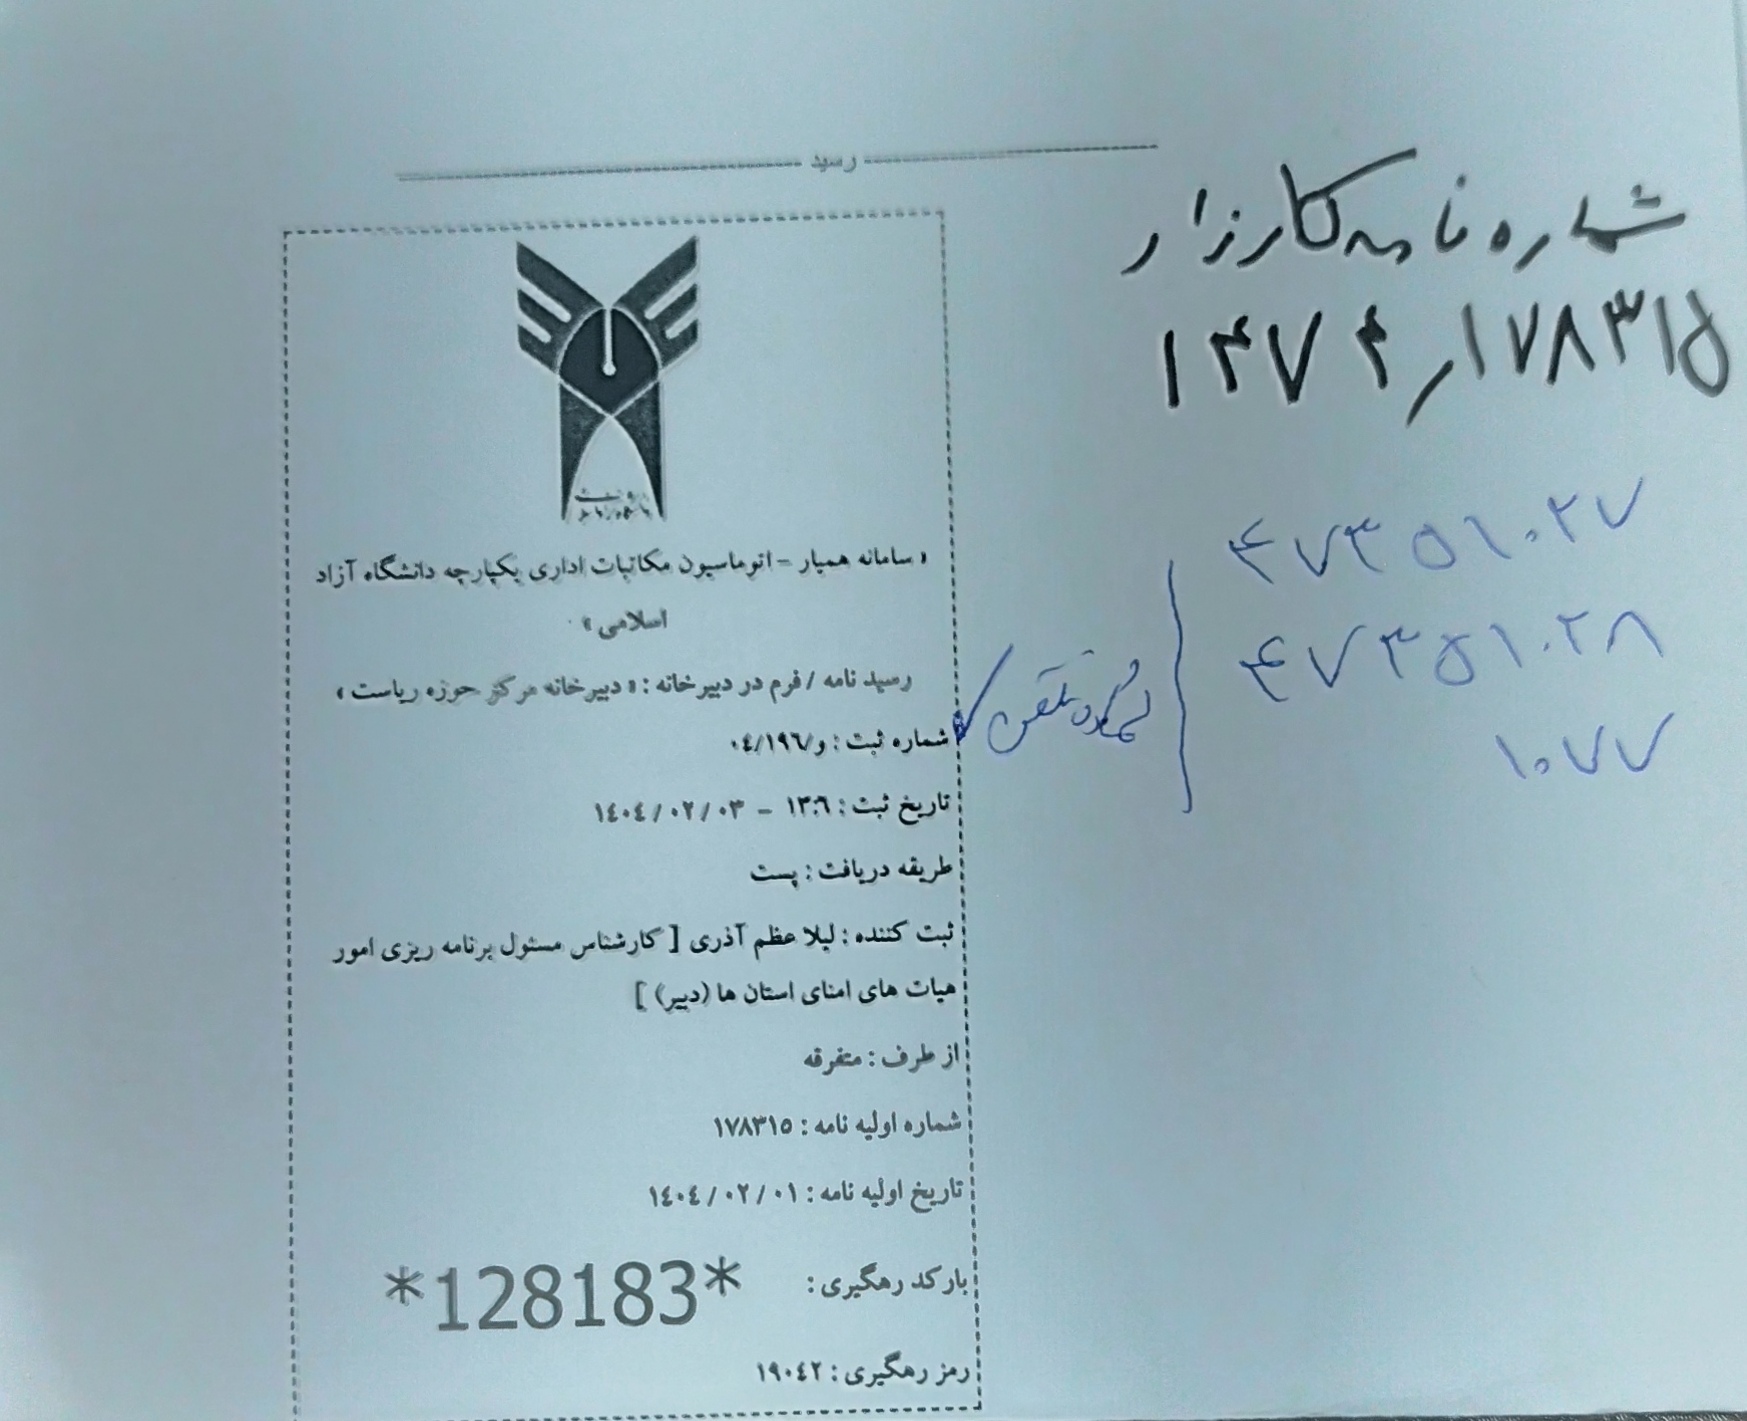 رسید
شماره نامه کارزار
۱۴۷۴ر۱۷۸۳۱۵
« سامانه همیار - اتوماسیون مکاتبات اداری یکپارچه دانشگاه آزاد
اسلامی »
رسید نامه / فرم در دبیرخانه : « دبیرخانه مرکز حوزه ریاست »
شماره ثبت : و/۰٤/۱۹٦
تاریخ ثبت : ۱۳:٦ - ۱٤۰٤/۰۲/۰۳
طریقه دریافت : پست
ثبت کننده : لیلا عظم آذری [ کارشناس مسئول برنامه ریزی امور
هیات های امنای استان ها (دبیر) ]
از طرف : متفرقه
شماره اولیه نامه : ۱۷۸۳۱٥
تاریخ اولیه نامه : ۱٤۰٤/۰۲/۰۱
بارکد رهگیری : *128183*
رمز رهگیری : ۱۹۰٤۲
۴۷۳۵۱۰۲۷
۴۷۳۵۱۰۲۸
۱۰۷۷
شماره تلفن